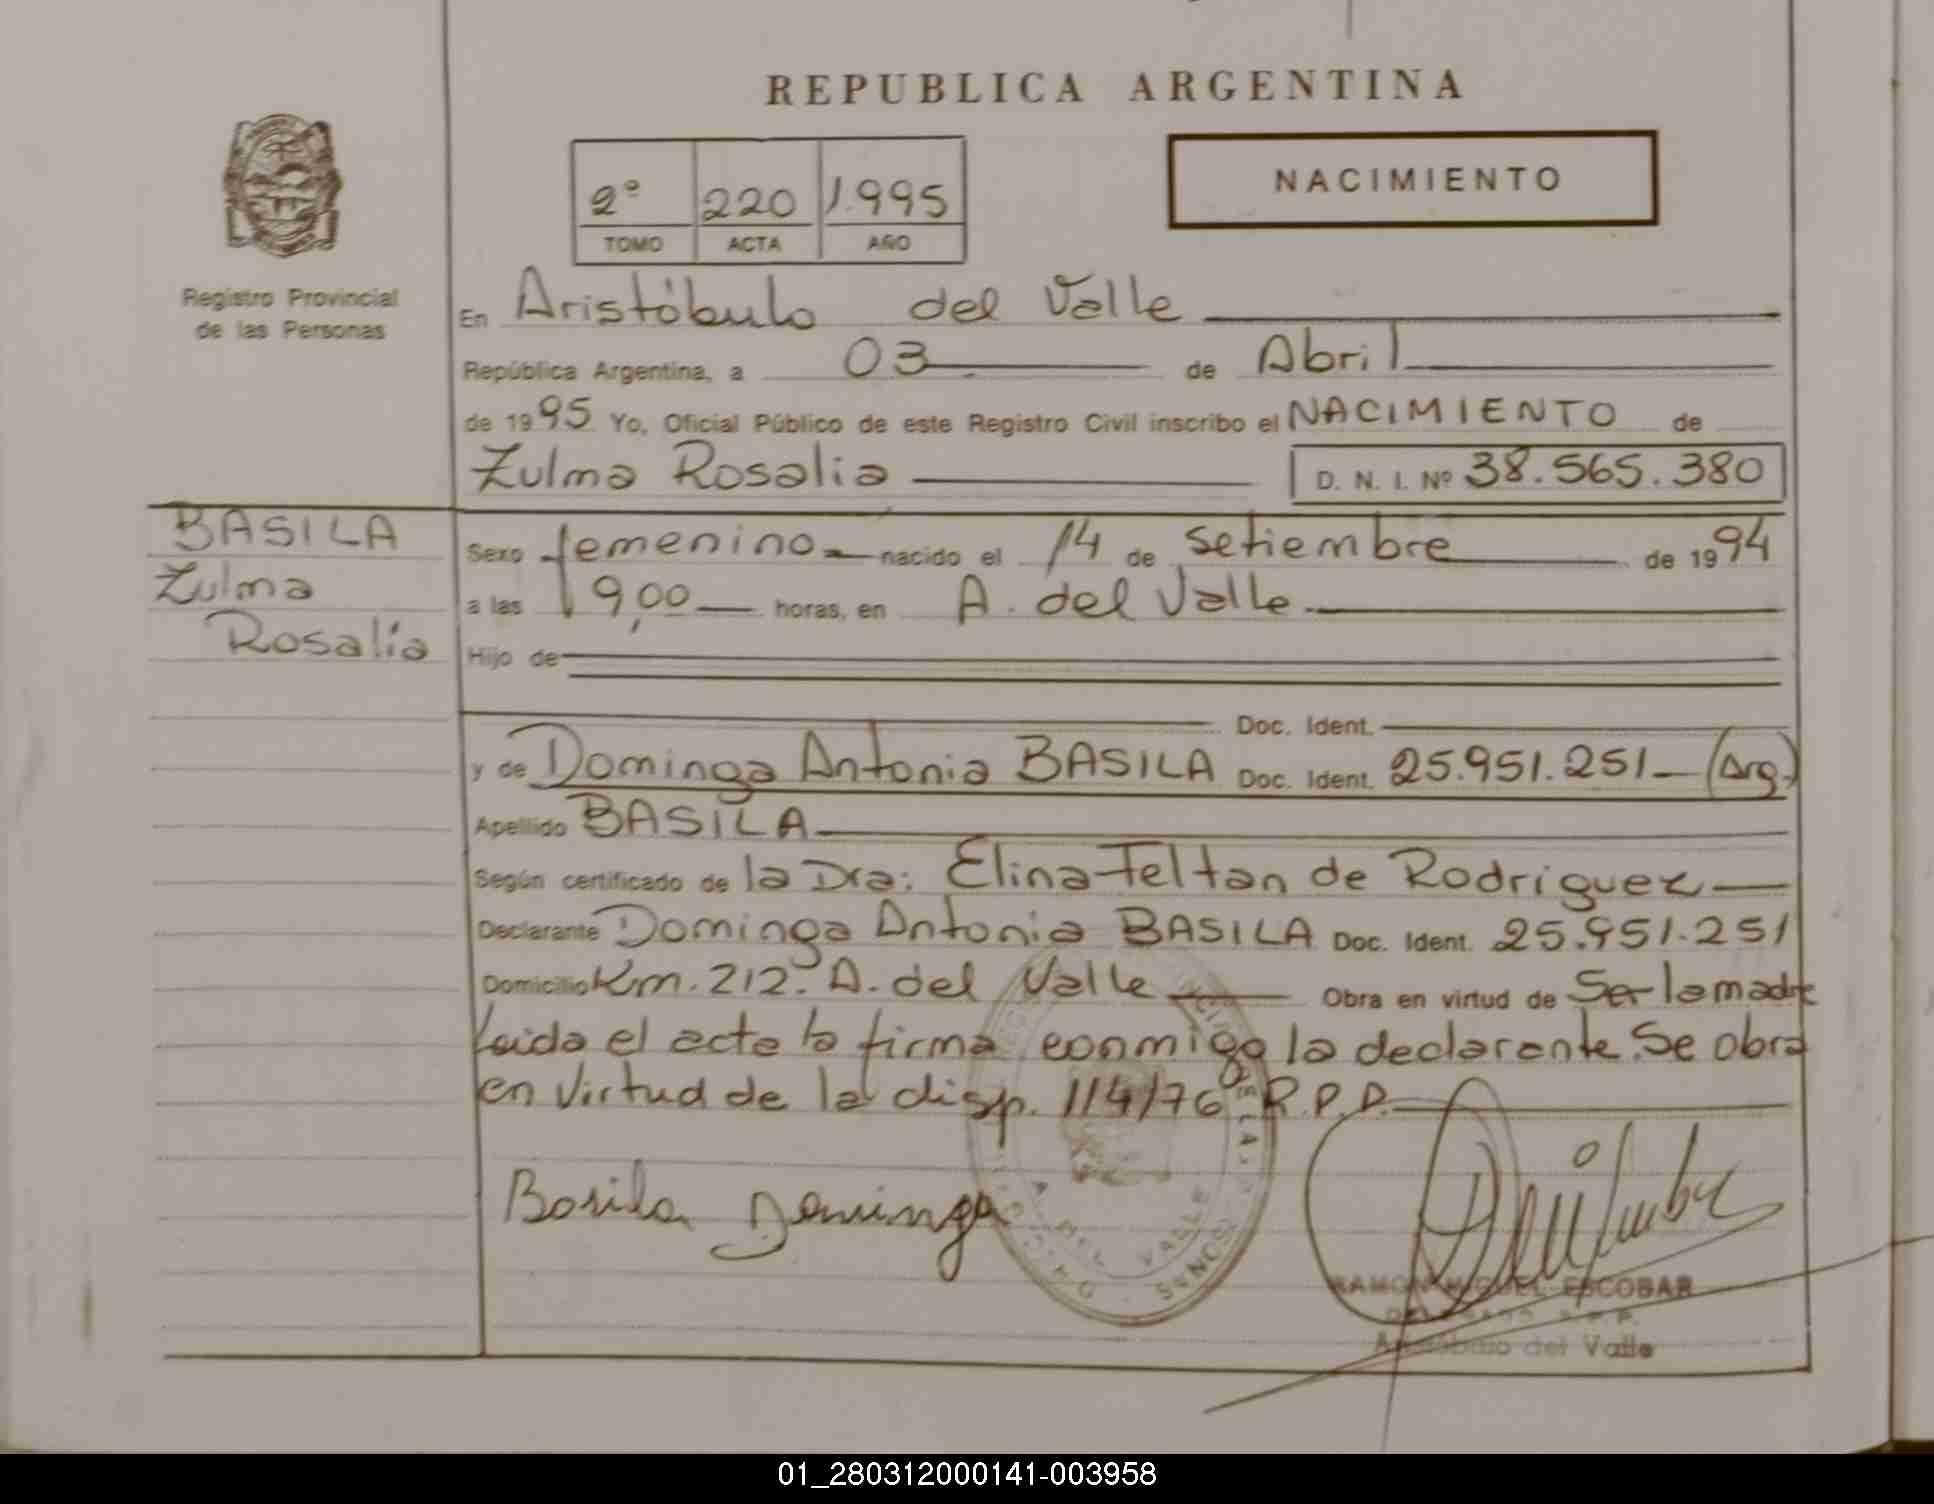 REPUBLICA ARGENTINA
2º 220 1.995
TOMO ACTA AÑO
NACIMIENTO
Registro Provincial
de las Personas
En Aristóbulo del Valle
República Argentina, a 03 de Abril
de 1995 Yo, Oficial Público de este Registro Civil inscribo el NACIMIENTO de
Zulma Rosalia D. N. I. Nº 38.565.380
BASILA
Zulma
Rosalia
Sexo femenino nacido el 14 de setiembre de 1994
a las 19,00 horas, en A. del Valle
Hijo de
Doc. Ident.
y de Dominga Antonia BASILA Doc. Ident. 25.951.251 (Arg.)
Apellido BASILA
Según certificado de la Dra: Elina Feltan de Rodriguez
Declarante Dominga Antonia BASILA Doc. Ident. 25.951.251
Domicilio Km. 212. A. del Valle Obra en virtud de Ser la madre
Leida el acta la firma conmigo la declarante. Se obra
en virtud de la disp. 114/76 R.P.P.
Basila Dominga
A. DEL VALLE
RAMON MIGUEL ESCOBAR
Aristóbulo del Valle
01_280312000141-003958